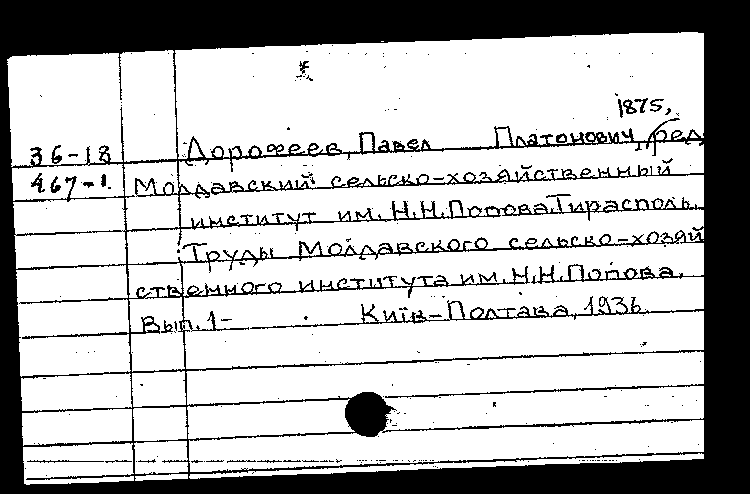 1875,
36-18 Дорофеев, Павел Платонович, ред.
467-1. Молдавский сельско-хозяйственный
институт им. Н.Н.Попова.Тирасполь.
Труды Молдавского сельско-хозяй
ственного института им. Н.Н.Попова.
Вып. 1- Київ-Полтава, 1936.